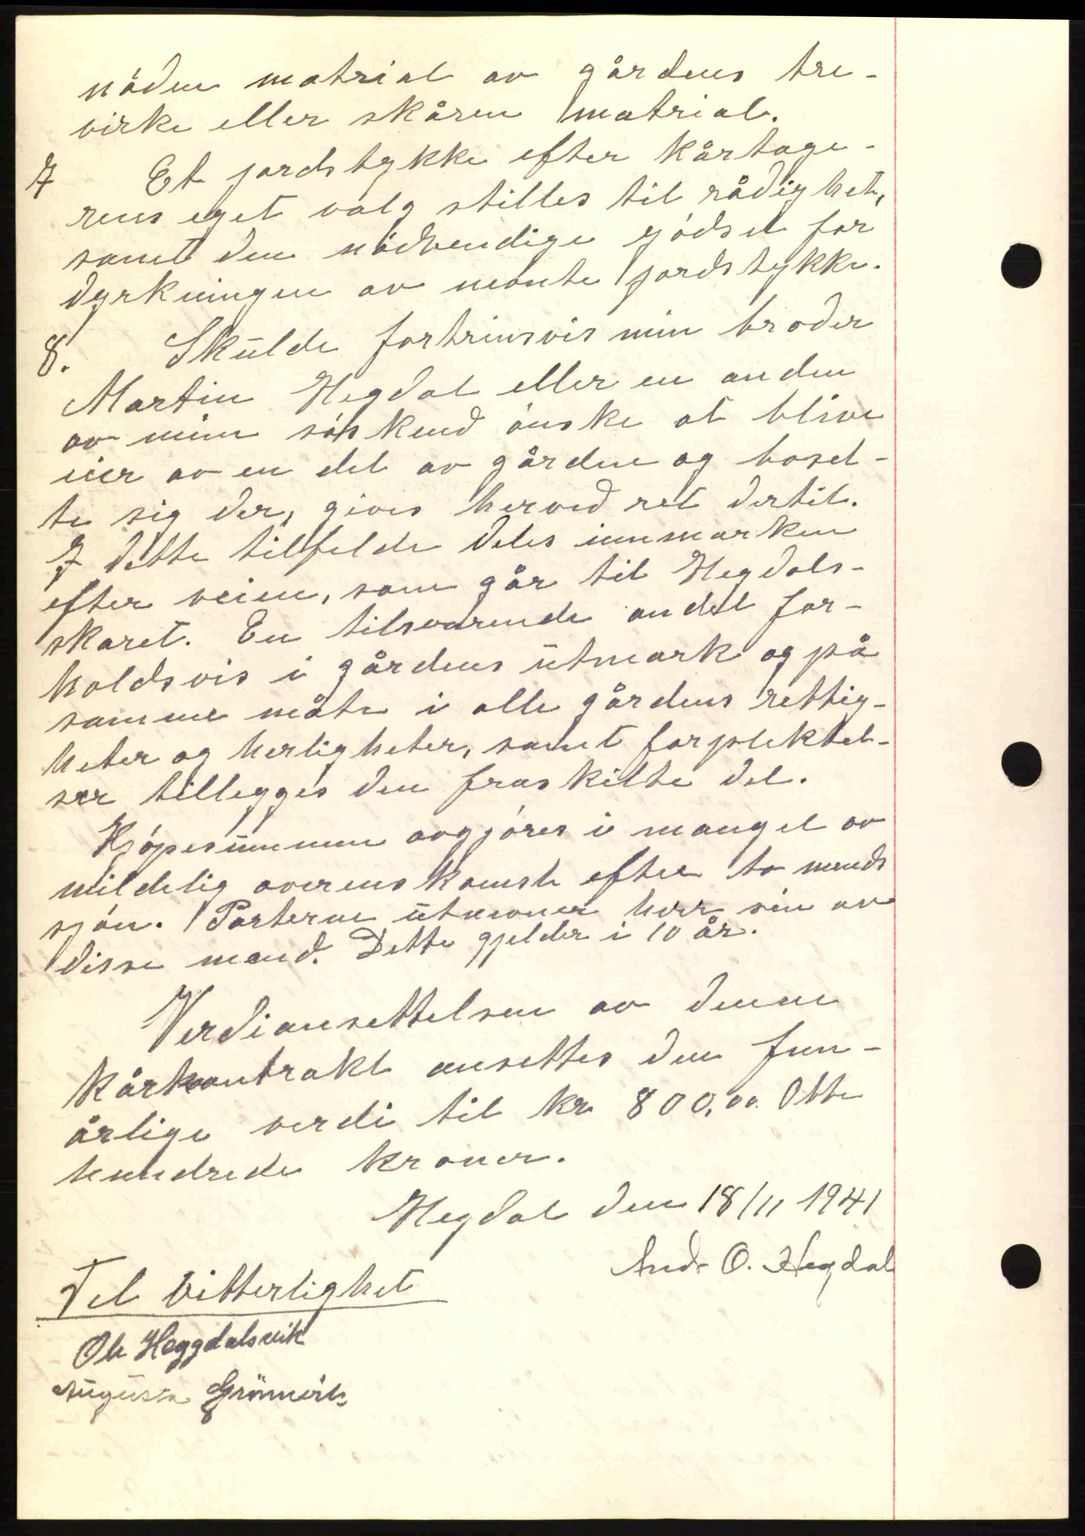 nöden matrial av gårdens tre-
virke eller skåren matrial.
7 Et jordstykke efter kårtage-
rens eget valg stilles til rådighet,
samt den nödvendige gjödsel for
dyrkningen av nevnte jordstykke.
8. Skulde fortrinsvis min broder
Martin Hegdal eller en anden
av mine söskend önske at blive
eier av en del av gården og boset-
te sig der, gives herved ret dertil.
I dette tilfelde deles innmarken
efter veien, som går til Hegdals-
skaret. En tilsvarende andel for-
holdsvis i gårdens utmark og på
samme måte i alle gårdens rettig-
heter og herligheter, samt forpliktel-
ser tillegges den fraskilte del.
Kjöpesummen avgjöres i mangel av
mildelig overenskomst efter to mends
sjön. Parterne utnevner hver sin av
disse mend. Dette gjelder i 10 år.
Verdiansettelsen av denne
kårkontrakt ansettes den fem-
årlige verdi til kr 800,00. Otte
hundrede kroner.
Hegdal den 18/11 1941
And. O. Hegdal
Tel vitterlighet
Ole Heggdalsvik
Augusta Grönnvik